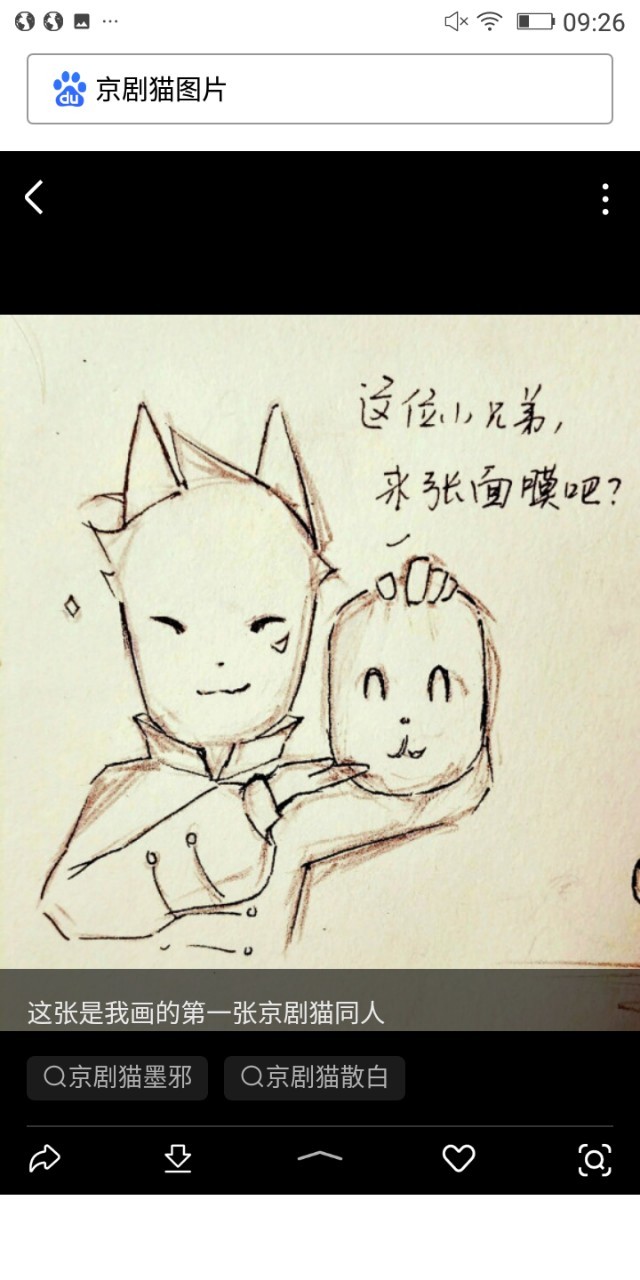 09:26
du 京剧猫图片
这位小兄弟,
来张面膜吧?
这张是我画的第一张京剧猫同人
京剧猫墨邪 京剧猫散白